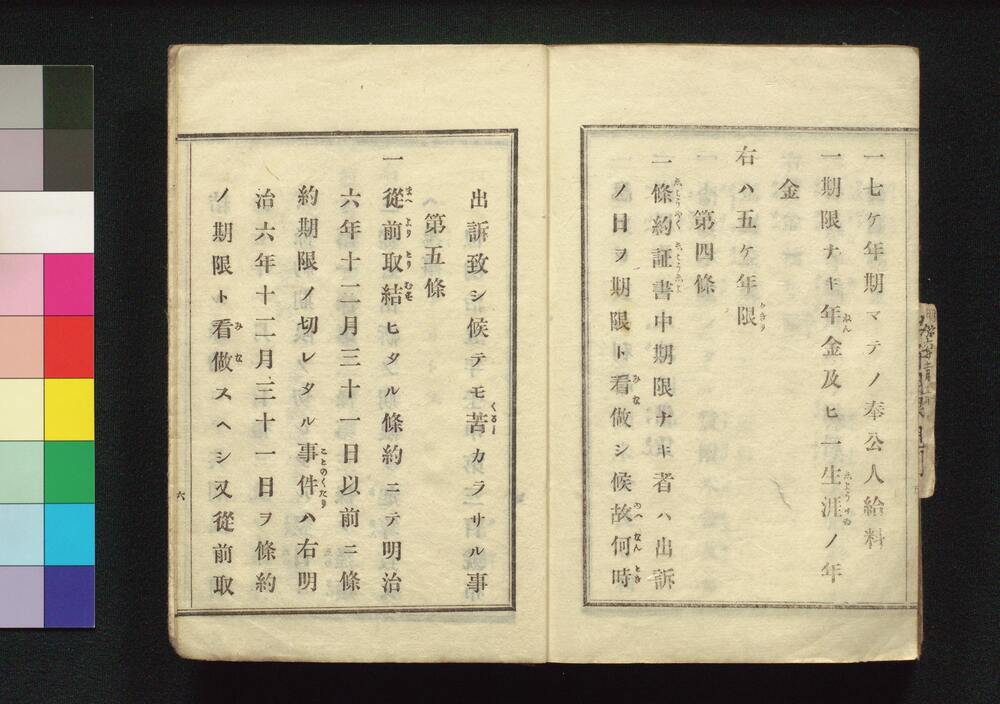 一七ケ年期マテノ奉公人給料
一期限ナキ年金及ヒ一生涯ノ年
金
右ハ五ケ年限
第四條
一條約証書中期限ナキ者ハ出訴
ノ日ヲ期限ト看做シ候故何時
出訴致シ候テモ苦カラサル事
第五條
一從前取結ヒタル條約ニテ明治
六年十二月三十一日以前ニ條
約期限ノ切レタル事件ハ右明
治六年十二月三十一日ヲ條約
ノ期限ト看做スヘシ又從前取
六